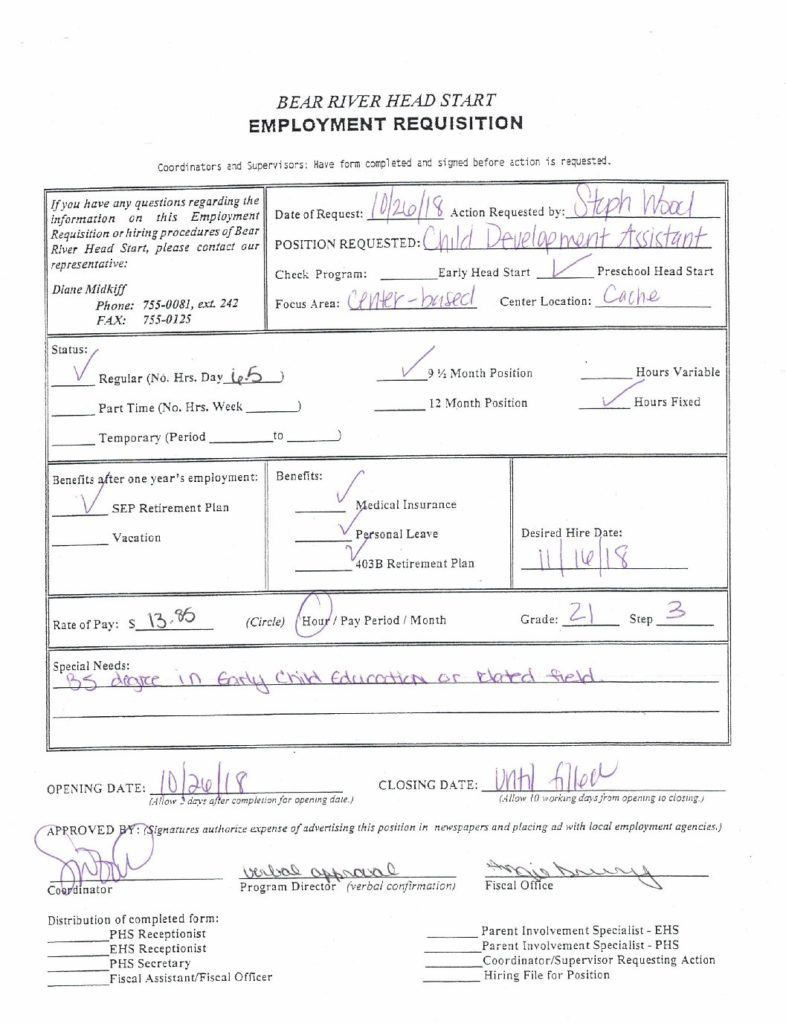 BEAR RIVER HEAD START
EMPLOYMENT REQUISITION
Coordinators and Supervisors: Have form completed and signed before action is requested.
If you have any questions regarding the
information on this Employment
Requisition or hiring procedures of Bear
River Head Start, please contact our
representative:
Diane Midkiff
Phone: 755-0081, ext. 242
FAX: 755-0125
Date of Request: 10/26/18 Action Requested by: Steph Wood
POSITION REQUESTED: Child Development Assistant
Check Program: ______ Early Head Start __✓__ Preschool Head Start
Focus Area: Center-based Center Location: Cache
Status:
✓ Regular (No. Hrs. Day 6.5 ) ✓ 9 ½ Month Position ______ Hours Variable
______ Part Time (No. Hrs. Week ______) ______ 12 Month Position ✓ Hours Fixed
______ Temporary (Period ______ to ______)
Benefits after one year's employment:
✓ SEP Retirement Plan
______ Vacation
Benefits:
✓ Medical Insurance
✓ Personal Leave
✓ 403B Retirement Plan
Desired Hire Date:
11/16/18
Rate of Pay: $ 13.85 (Circle) Hour / Pay Period / Month Grade: 21 Step 3
Special Needs:
BS degree in Early Child Education or related field.
OPENING DATE: 10/26/18 CLOSING DATE: Until filled
(Allow 3 days after completion for opening date.) (Allow 10 working days from opening to closing.)
APPROVED BY: (Signatures authorize expense of advertising this position in newspapers and placing ad with local employment agencies.)
verbal approval
Coordinator Program Director (verbal confirmation) Fiscal Office
Distribution of completed form:
______ PHS Receptionist ______ Parent Involvement Specialist - EHS
______ EHS Receptionist ______ Parent Involvement Specialist - PHS
______ PHS Secretary ______ Coordinator/Supervisor Requesting Action
______ Fiscal Assistant/Fiscal Officer ______ Hiring File for Position